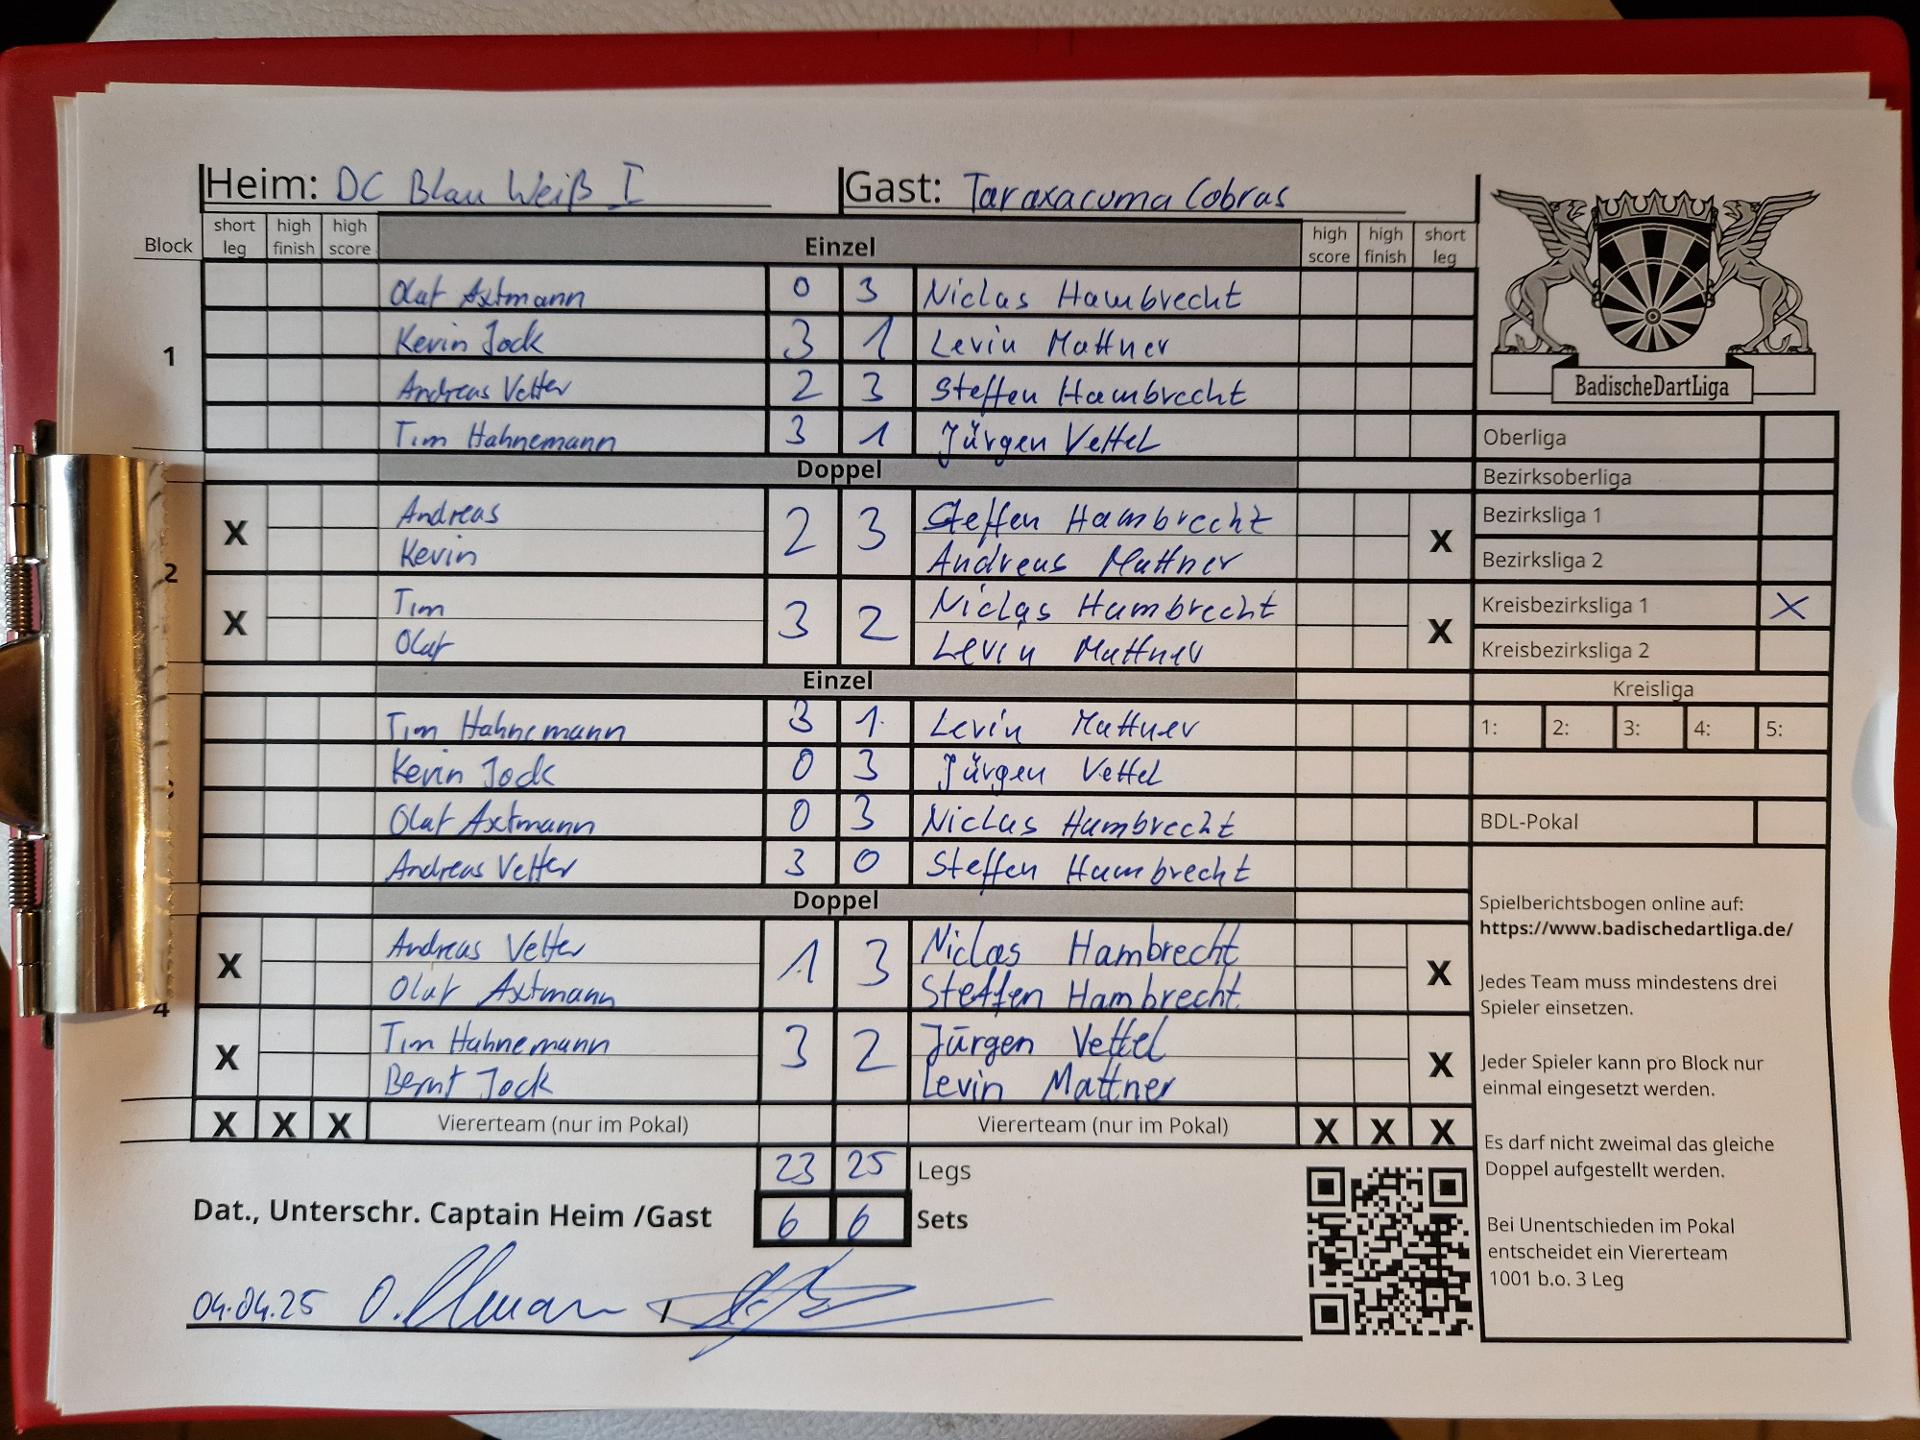 Heim: DC Blau Weiß I Gast: Taraxacuma Cobras
Block short leg high finish high score Einzel high score high finish short leg
1
Olaf Axtmann 0 3 Niclas Hambrecht
Kevin Jock 3 1 Levin Mattner
Andreas Vetter 2 3 Steffen Hambrecht
Tim Hahnemann 3 1 Jürgen Vettel
Doppel
2
X Andreas 2 3 Steffen Hambrecht X
Kevin Andreas Mattner
X Tim 3 2 Niclas Hambrecht X
Olaf Levin Mattner
Einzel
Tim Hahnemann 3 1 Levin Mattner
Kevin Jock 0 3 Jürgen Vettel
Olaf Axtmann 0 3 Niclas Hambrecht
Andreas Vetter 3 0 Steffen Hambrecht
Doppel
4
X Andreas Vetter 1 3 Niclas Hambrecht X
Olaf Axtmann Steffen Hambrecht
X Tim Hahnemann 3 2 Jürgen Vettel X
Bernt Jock Levin Mattner
X X X Viererteam (nur im Pokal) Viererteam (nur im Pokal) X X X
23 25 Legs
Dat., Unterschr. Captain Heim /Gast 6 6 Sets
04.04.25 /
BadischeDartLiga
Oberliga
Bezirksoberliga
Bezirksliga 1
Bezirksliga 2
Kreisbezirksliga 1 X
Kreisbezirksliga 2
Kreisliga
1: 2: 3: 4: 5:
BDL-Pokal
Spielberichtsbogen online auf:
https://www.badischedartliga.de/
Jedes Team muss mindestens drei
Spieler einsetzen.
Jeder Spieler kann pro Block nur
einmal eingesetzt werden.
Es darf nicht zweimal das gleiche
Doppel aufgestellt werden.
Bei Unentschieden im Pokal
entscheidet ein Viererteam
1001 b.o. 3 Leg